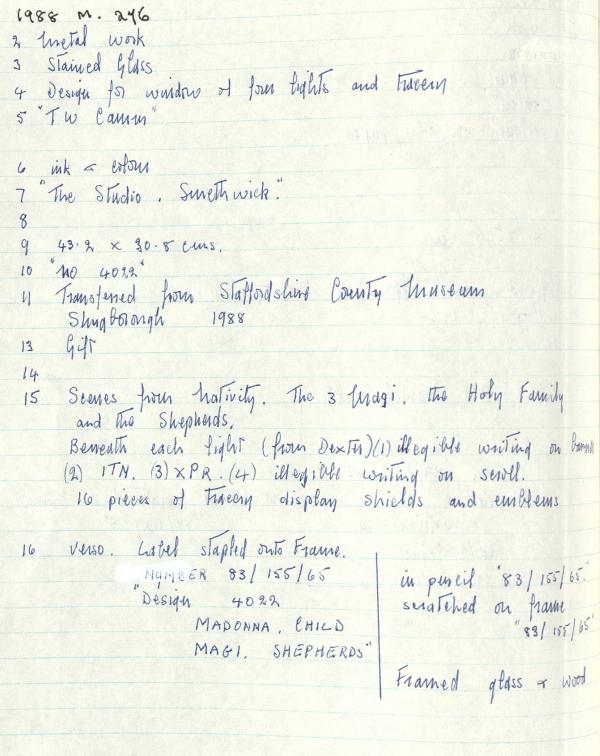 1988 M. 246
2 Metal work
3 Stained Glass
4 Design for window of four lights and tracery
5 "TW Camm"
6 ink & colour
7 "The Studio, Smethwick."
8
9 43.2 x 30.8 cms.
10 "No 4022"
11 Transferred from Staffordshire County Museum
Shugborough 1988
13 Gift
14
15 Scenes from Nativity. The 3 Magi, the Holy Family
and the Shepherds.
Beneath each light (from Dexter) (1) illegible writing on
(2) ITN. (3) XPR. (4) illegible writing on scroll.
16 pieces of tracery display shields and emblems
16 verso. Label stapled onto Frame.
NUMBER 83/155/65
"Design 4022
MADONNA, CHILD
MAGI, SHEPHERDS"
in pencil "83/155/65."
scratched on frame
"83/155/65"
Framed glass & wood